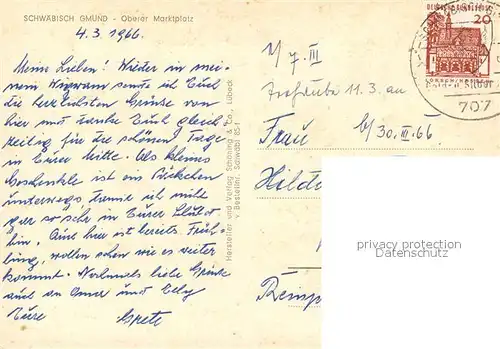 SCHWÄBISCH GMÜND - Oberer Marktplatz
4.3.1966.
Meine Lieben! Wieder in mei-
nem Wigwam sende ich Euch
die herzlichsten Grüsse von
hier und danke Euch gleich-
zeitig für die schönen Tage
in Eurer Mitte. Als kleines
ist ein Päckchen
unterwegs, damit ich nicht
gar so sehr in Eurer Schuld
bin. Auch hier ist bereits Früh-
ling, wollen sehen wie es weiter
kommt. Nochmals liebe Grüsse
auch an und
Eure Grete
Hersteller und Verlag Schöning & Co., Lübeck
v. Bestellnr. Schwäbi 85-1
DEUTSCHE BUNDESPOST
20
LORSCH/HESSEN
Gold- u. Silber
707
11.3. an
30.III.66
Frau
Hilde
privacy protection
Datenschutz